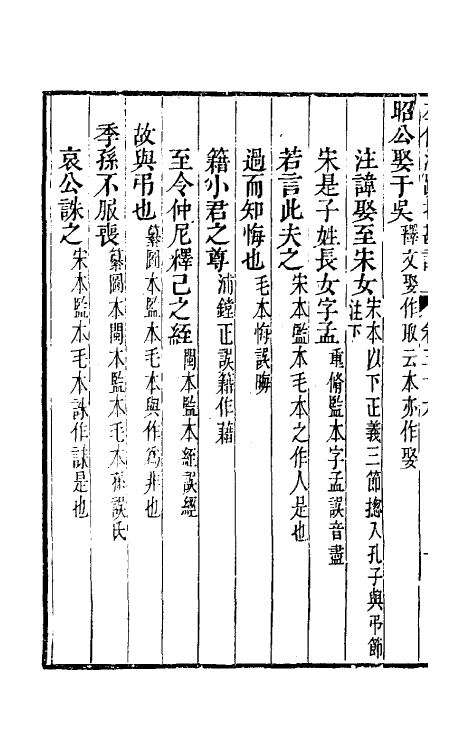 昭公娶于吳釋文娶作取云本亦作娶
注諱娶至宋女宋本以下正義三節揔入孔子與弔節注下
宋是子姓長女字孟重脩監本字孟誤音盡
若言此夫之宋本監本毛本之作人是也
過而知悔也毛本悔誤晦
籍小君之尊浦鏜正誤籍作藉
至令仲尼釋己之絰閩本監本絰誤經
故與弔也纂圖本監本毛本與作爲非也
季孫不服喪纂圖本閩本監本毛本孫誤氏
哀公誄之宋本監本毛本誄作誅是也